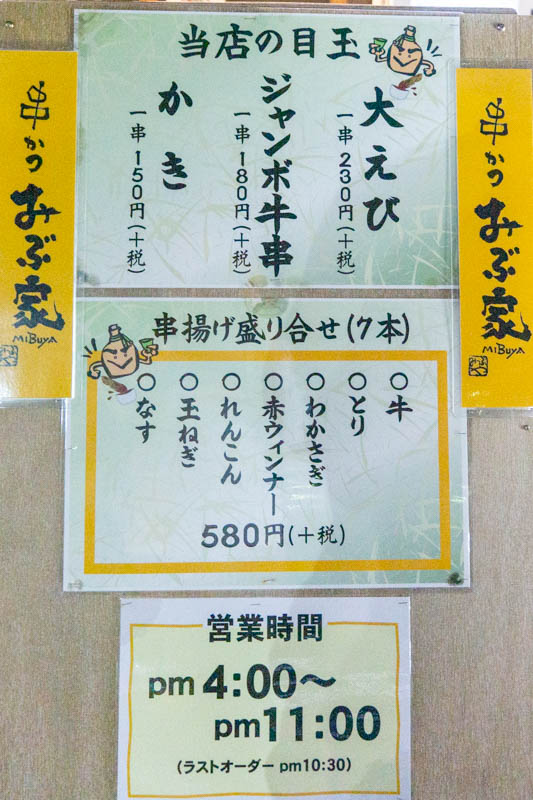 当店の目玉
大えび
一串230円(+税)
ジャンボ牛串
一串180円(+税)
かき
一串150円(+税)
串かつ みぶ家
MiBUYA
串かつ みぶ家
MiBUYA
串揚げ盛り合せ(7本)
○牛
○とり
○わかさぎ
○赤ウィンナー
○れんこん
○玉ねぎ
○なす
580円(+税)
営業時間
pm 4:00〜
pm 11:00
(ラストオーダー pm10:30)